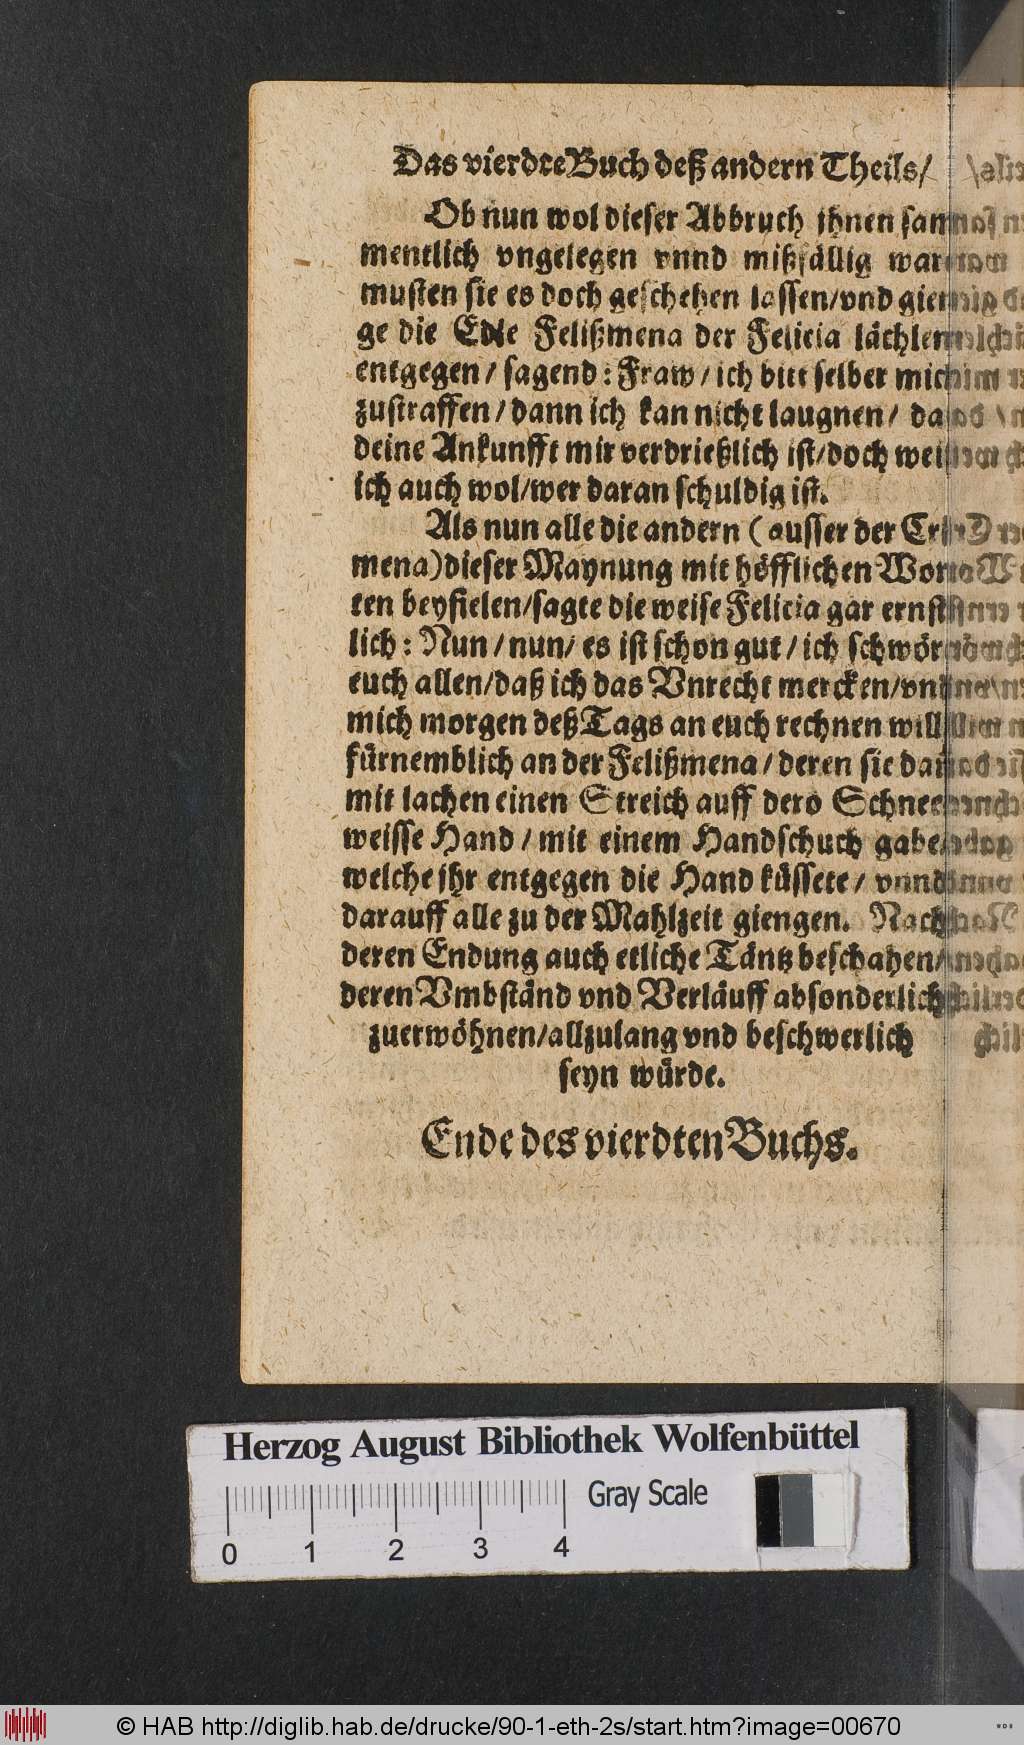 Das vierdte Buch deß andern Theils/
Ob nun wol dieser Abbruch jhnen sam⸗
mentlich vngelegen vnnd mißfällig war
musten sie es doch geschehen lassen/vnd gien⸗
ge die Edle Felißmena der Felicia lächlen
entgegen/ sagend: Fraw/ ich bitt selber mich
zustraffen/ dann ich kan nicht laugnen/ da
deine Ankunfft mir verdrießlich ist/doch weiß
ich auch wol/wer daran schuldig ist.
Als nun alle die andern (ausser der Cris⸗
mena)dieser Maynung mit höfflichen Wor⸗
ten beyfielen/sagte die weise Felicia gar ernst⸗
lich: Nun/ nun/ es ist schon gut/ ich schwöre
euch allen/daß ich das Vnrecht mercken/vnd
mich morgen deß Tags an euch rechnen will
fürnemblich an der Felißmena/ deren sie da
mit lachen einen Streich auff dero Schnee⸗
weisse Hand/ mit einem Handschuch gabe/
welche jhr entgegen die Hand küssete/ vnnd
darauff alle zu der Mahlzeit giengen. Nach
deren Endung auch etliche Täntz beschahen/
deren Vmbständ vnd Verläuff absonderlich
zuerwöhnen/allzulang vnd beschwerlich
seyn würde.
Ende des vierdten Buchs.
Herzog August Bibliothek Wolfenbüttel
Gray Scale
0 1 2 3 4
© HAB http://diglib.hab.de/drucke/90-1-eth-2s/start.htm?image=00670